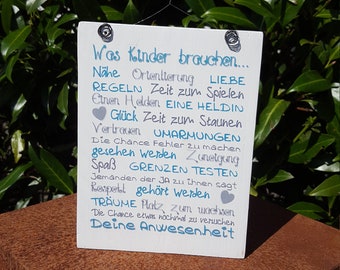 Was Kinder brauchen...
Nähe Orientierung LIEBE
REGELN Zeit zum Spielen
Einen Helden EINE HELDIN
Glück Zeit zum Staunen
Vertrauen UMARMUNGEN
Die Chance Fehler zu machen
gesehen werden Zuneigung
Spaß GRENZEN TESTEN
Jemanden der JA zu ihnen sagt
Respekt gehört werden
TRÄUME Platz zum wachsen
Die Chance etwas nochmal zu versuchen
Deine Anwesenheit